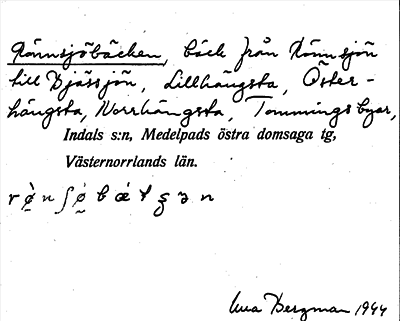 Rönnsjöbäcken, bäck från Rönnsjön
till Bjässjön, Lillhängsta, Öster-
hängsta, Norrhängsta, Tommingsbyar,
Indals s:n, Medelpads östra domsaga tg,
Västernorrlands län.
Bergman 1944